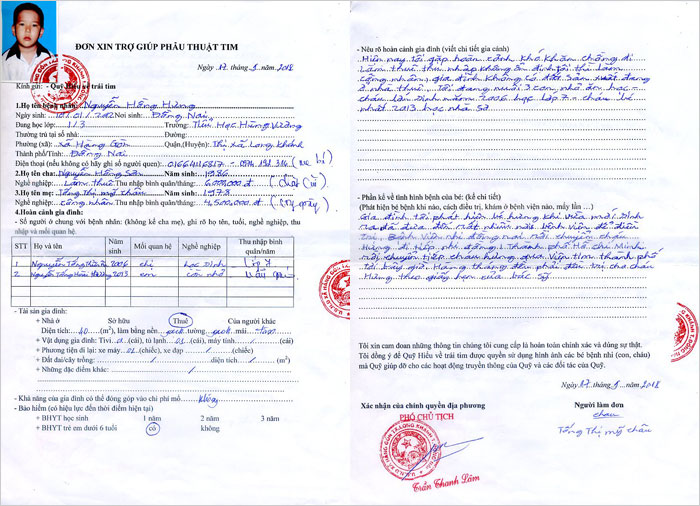 ĐƠN XIN TRỢ GIÚP PHẪU THUẬT TIM
Ngày 17 tháng 1 năm 2018
Kính gửi: - Quỹ Hiểu về trái tim
1.Họ tên bệnh nhân: Nguyễn Hồng Hưng
Ngày sinh: Nơi sinh: Đồng Nai
Đang học lớp: 1/3 Trường: Tiểu Học Hùng Vương
Thường trú tại số nhà: Đường:
Phường (xã): xã Hàng Gòn Quận,(Huyện): Thị xã Long Khánh
Thành phố/Tỉnh: Đồng Nai
Điện thoại (nếu không có hãy ghi số người quen):
2.Họ tên cha: Nguyễn Hồng Sơn Năm sinh: 1986
Nghề nghiệp: Làm thuê Thu nhập bình quân/tháng: 6.000.000 đ
3.Họ tên mẹ: Tống Thị Mỹ Châu Năm sinh: 1978
Nghề nghiệp: công nhân Thu nhập bình quân/tháng: 4,500,000 đ
4.Hoàn cảnh gia đình:
- Số người ở chung với bệnh nhân: (không kể cha mẹ), ghi rõ họ tên, tuổi, nghề nghiệp, thu
nhập và mối quan hệ.
STT Họ và tên Năm sinh Mối quan hệ Nghề nghiệp Thu nhập bình quân/năm
1 Nguyễn 2006 chị học sinh Lớp 7
2 Nguyễn Tống 2013 em còn nhỏ
- Tài sản gia đình:
+ Nhà ở Sở hữu Thuê Của người khác
Diện tích: 40 (m2), làm bằng nền: tường mái: tôn
+ Vật dụng gia đình: Tivi (cái), tủ lạnh 01 (cái), máy tính / (cái)
+ Phương tiện đi lại: xe máy 01 (chiếc), xe đạp / (chiếc)
+ Đất đai/cây trồng: / diện tích / (m2)
+ Những đặc điểm khác: /
- Khả năng của gia đình có thể đóng góp vào chi phí mổ: không
- Bảo hiểm (có hiệu lực đến thời điểm hiện tại)
+ BHYT học sinh 1 năm 2 năm 3 năm
+ BHYT trẻ em dưới 6 tuổi có không
- Nêu rõ hoàn cảnh gia đình (viết chi tiết gia cảnh)
Hiện nay tôi gặp hoàn cảnh khó khăn chồng đi
làm thuê thu nhập không ổn định tôi thì làm
công nhân, gia đình không có đất sản xuất đang
ở nhà thuê. Tôi đang nuôi 3 con nhỏ ăn học
cháu lớn sinh năm 2006 học lớp 7 - cháu bé
nhất 2013 học nhà sở
- Phần kể về tình hình bệnh của bé: (kể chi tiết)
(Phát hiện bé bệnh khi nào, cách điều trị, khám ở bệnh viện nào, mấy lần …)
Gia đình tôi phát hiện bé hưng khi vừa mới sinh
ra đã đưa đến rất nhiều nơi bệnh viện để điều
trị. Bệnh viện nhi đồng nai rồi chuyển cháu
Hưng đi tiếp nhi đồng 1 Thành phố Hồ Chí Minh
rồi chuyển tiếp cháu hưng qua viện tim thành phố
tới bây giờ. Hàng tháng đều phải đến trị cho cháu
Hưng theo giấy hẹn của bác sỹ
Tôi xin cam đoan những thông tin chúng tôi cung cấp là hoàn toàn chính xác và đúng sự thật.
Tôi đồng ý để Quỹ Hiểu về trái tim được quyền sử dụng hình ảnh các bé bệnh nhi (con, cháu)
mà Quỹ giúp đỡ cho các hoạt động truyền thông của Quỹ và các đối tác của Quỹ.
Ngày 17 tháng 1 năm 2018
Xác nhận của chính quyền địa phương
Người làm đơn
PHÓ CHỦ TỊCH
Châu
Tống Thị Mỹ Châu
Trần Thanh Lâm